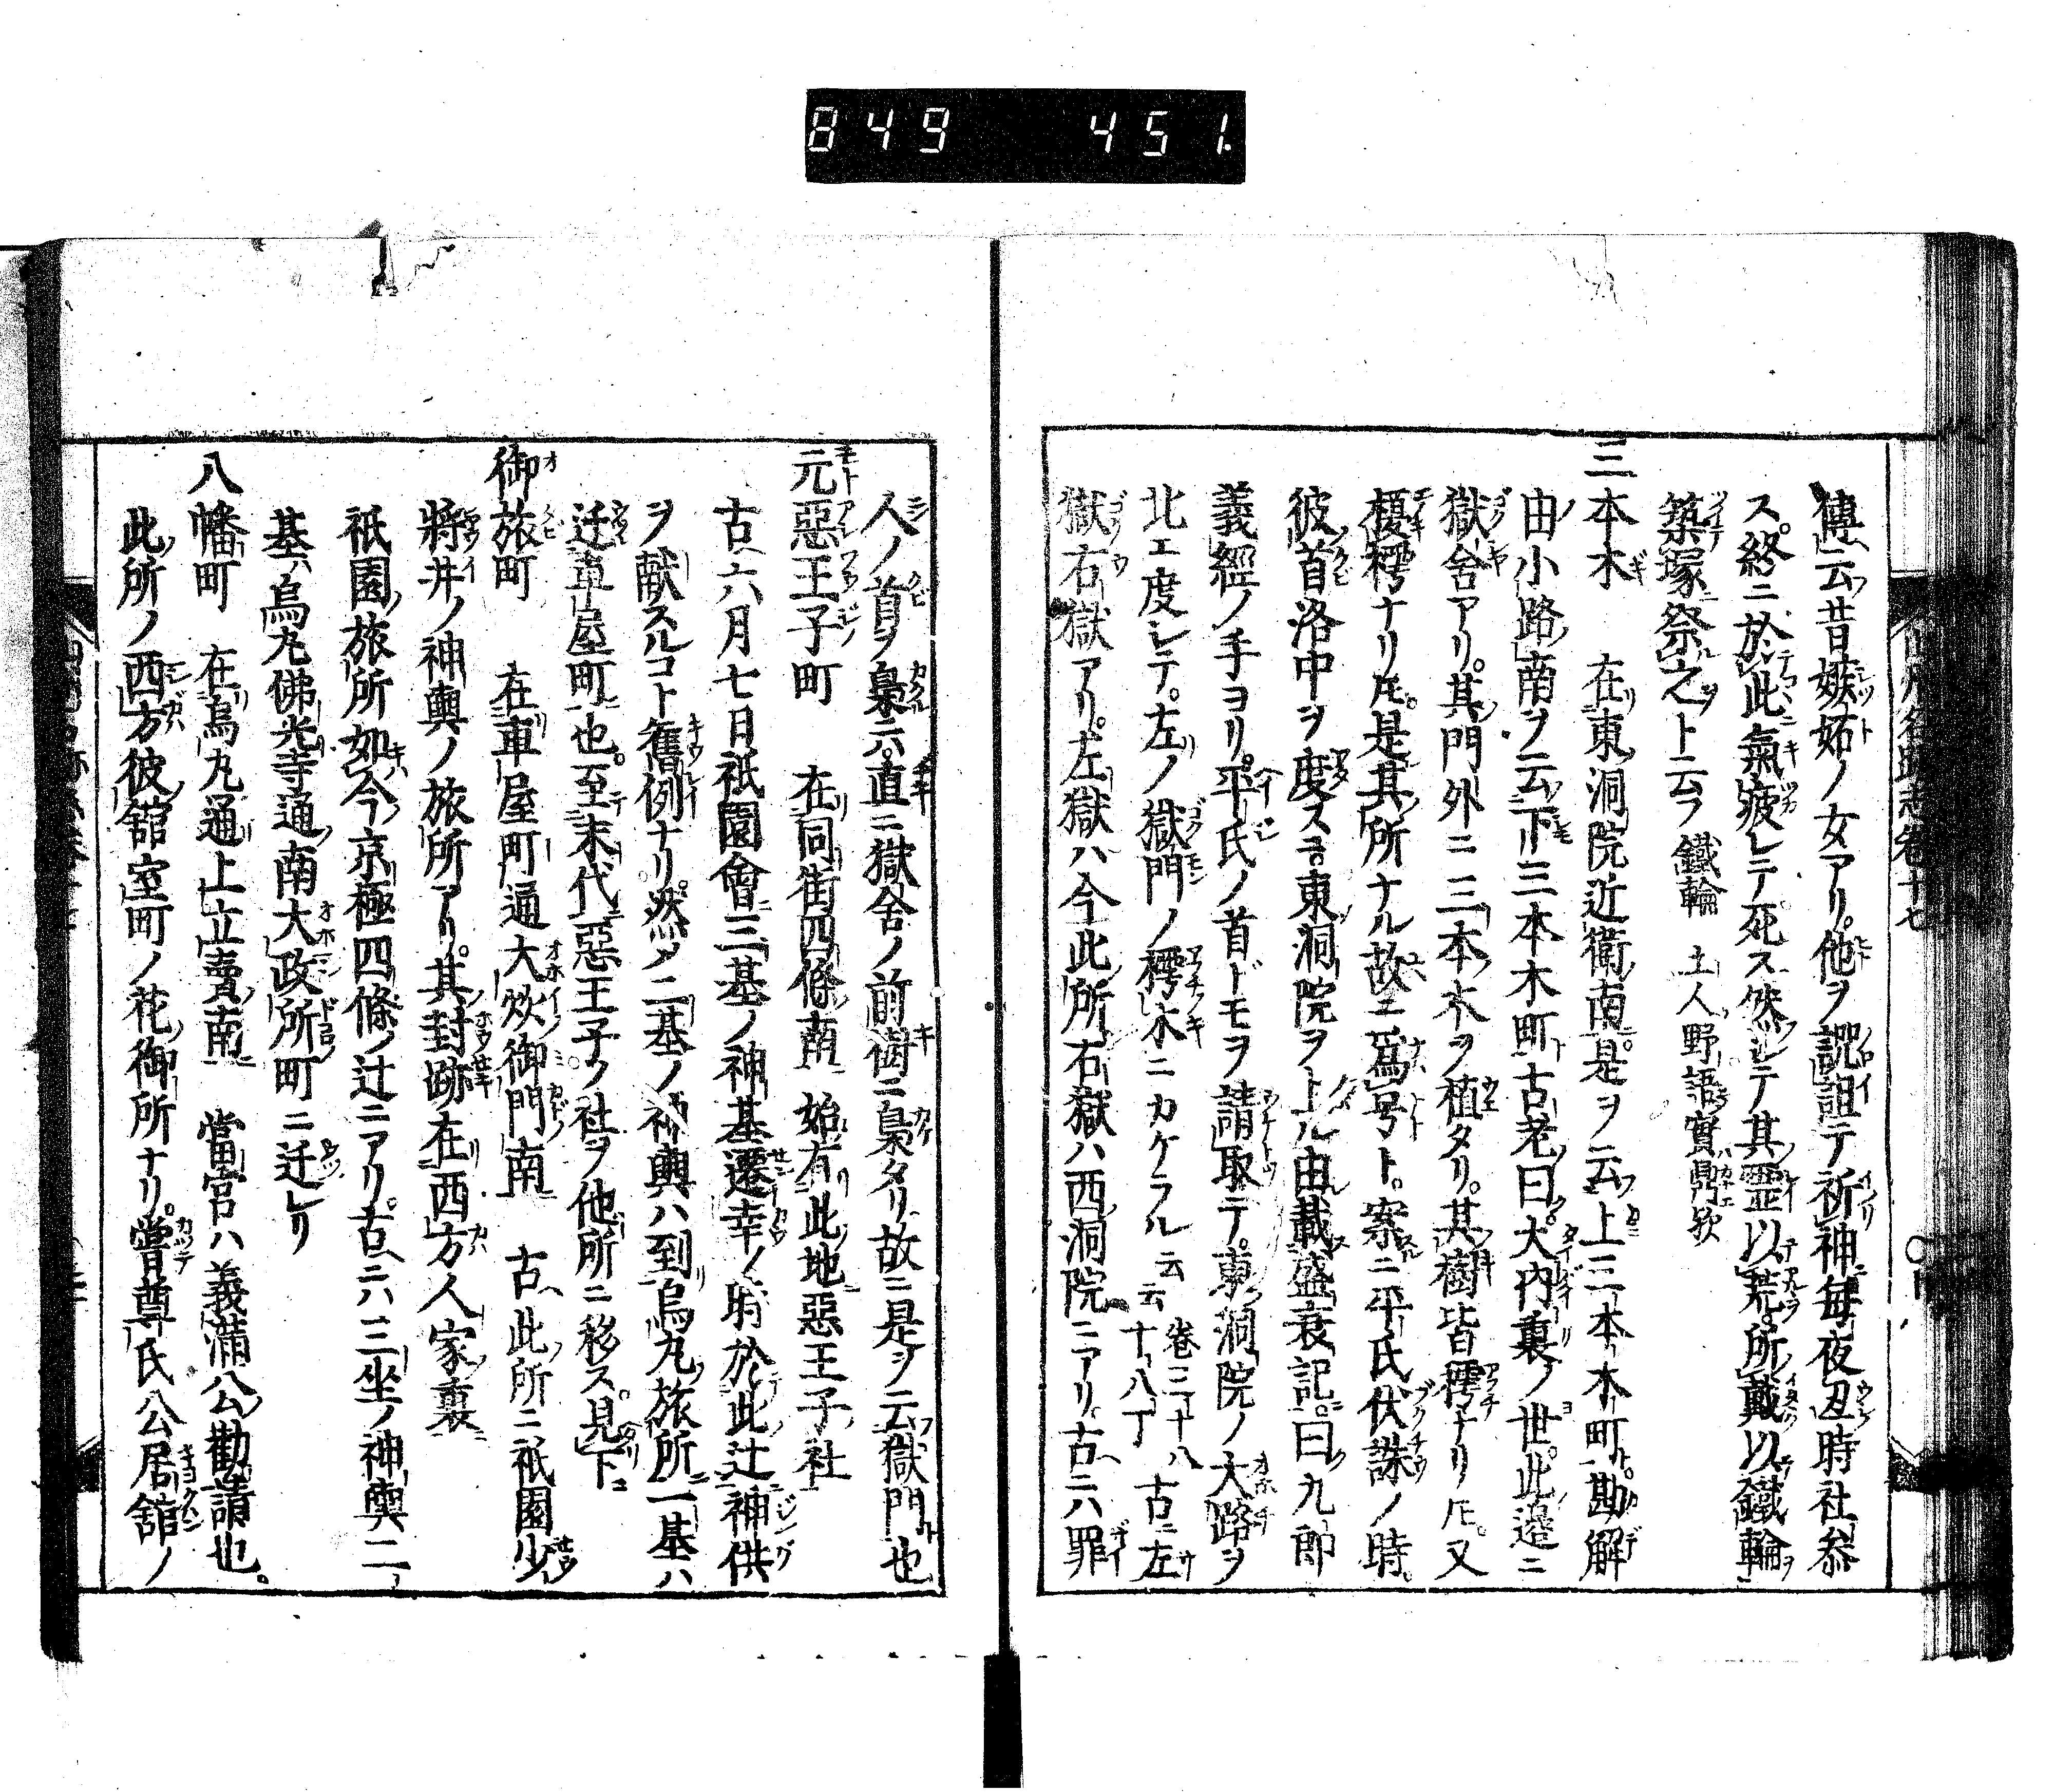 849 451.
傳云昔嫉妬ノ女アリ他ヲ詛テ祈神毎夜丑時社参
ス終ニ於此氣疲レテ死ス然シテ其霊以荒所戴以鐵輪
築塚祭之ト云フ 鐵輪 土人野語實鼎歟
三本木 在東洞院近衛南是ヲ云上三本木町勘解
由小路南ヲ云下三本木町古老曰大内裏ノ世此邉ニ
獄舎アリ其門外ニ三本木ヲ植タリ其樹皆樗ナリ𪜈又
榎樗ナリ𪜈是其所ナル故ニ爲号ト案ニ平氏伏誅ノ時
彼首洛中ヲ度スヿ東洞院ヲ上ル由載盛衰記曰九郎
義經ノ手ヨリ平氏ノ首ドモヲ請取テ東洞院ノ大路ヲ
北エ度シテ左ノ獄門ノ樗木ニカケラル云云 卷三十八 十八丁 古ニ左
獄右獄アリ左獄ハ今此所右獄ハ西洞院ニアリ古ニハ罪
人ノ首ヲ梟ニハ直ニ獄舎ノ前樹ニ梟タリ故ニ是ヲ云獄門也
元惡王子町 在同街四條南 始有此地惡王子社
古六月七日祇園會三基ノ神基遷幸ノ時於此辻神供
ヲ献スルコト舊例ナリ然メ二基ノ神輿ハ到烏丸旅所一基ハ
迁車屋町也至末代惡王子ノ社ヲ他所ニ移ス見下
御旅町 在車屋町通大炊御門南 古此所ニ祇園少
將井ノ神輿ノ旅所アリ其封跡在西方人家裏
祇園旅所如今京極四條ノ辻ニアリ古ニハ三坐ノ神輿二
基ハ烏丸佛光寺通南大政所町ニ迁レリ
八幡町 在烏丸通上立賣南 當宮ハ義滿公勸請也
此所ノ西方彼舘室町ノ花御所ナリ曾尊氏公居舘ノ